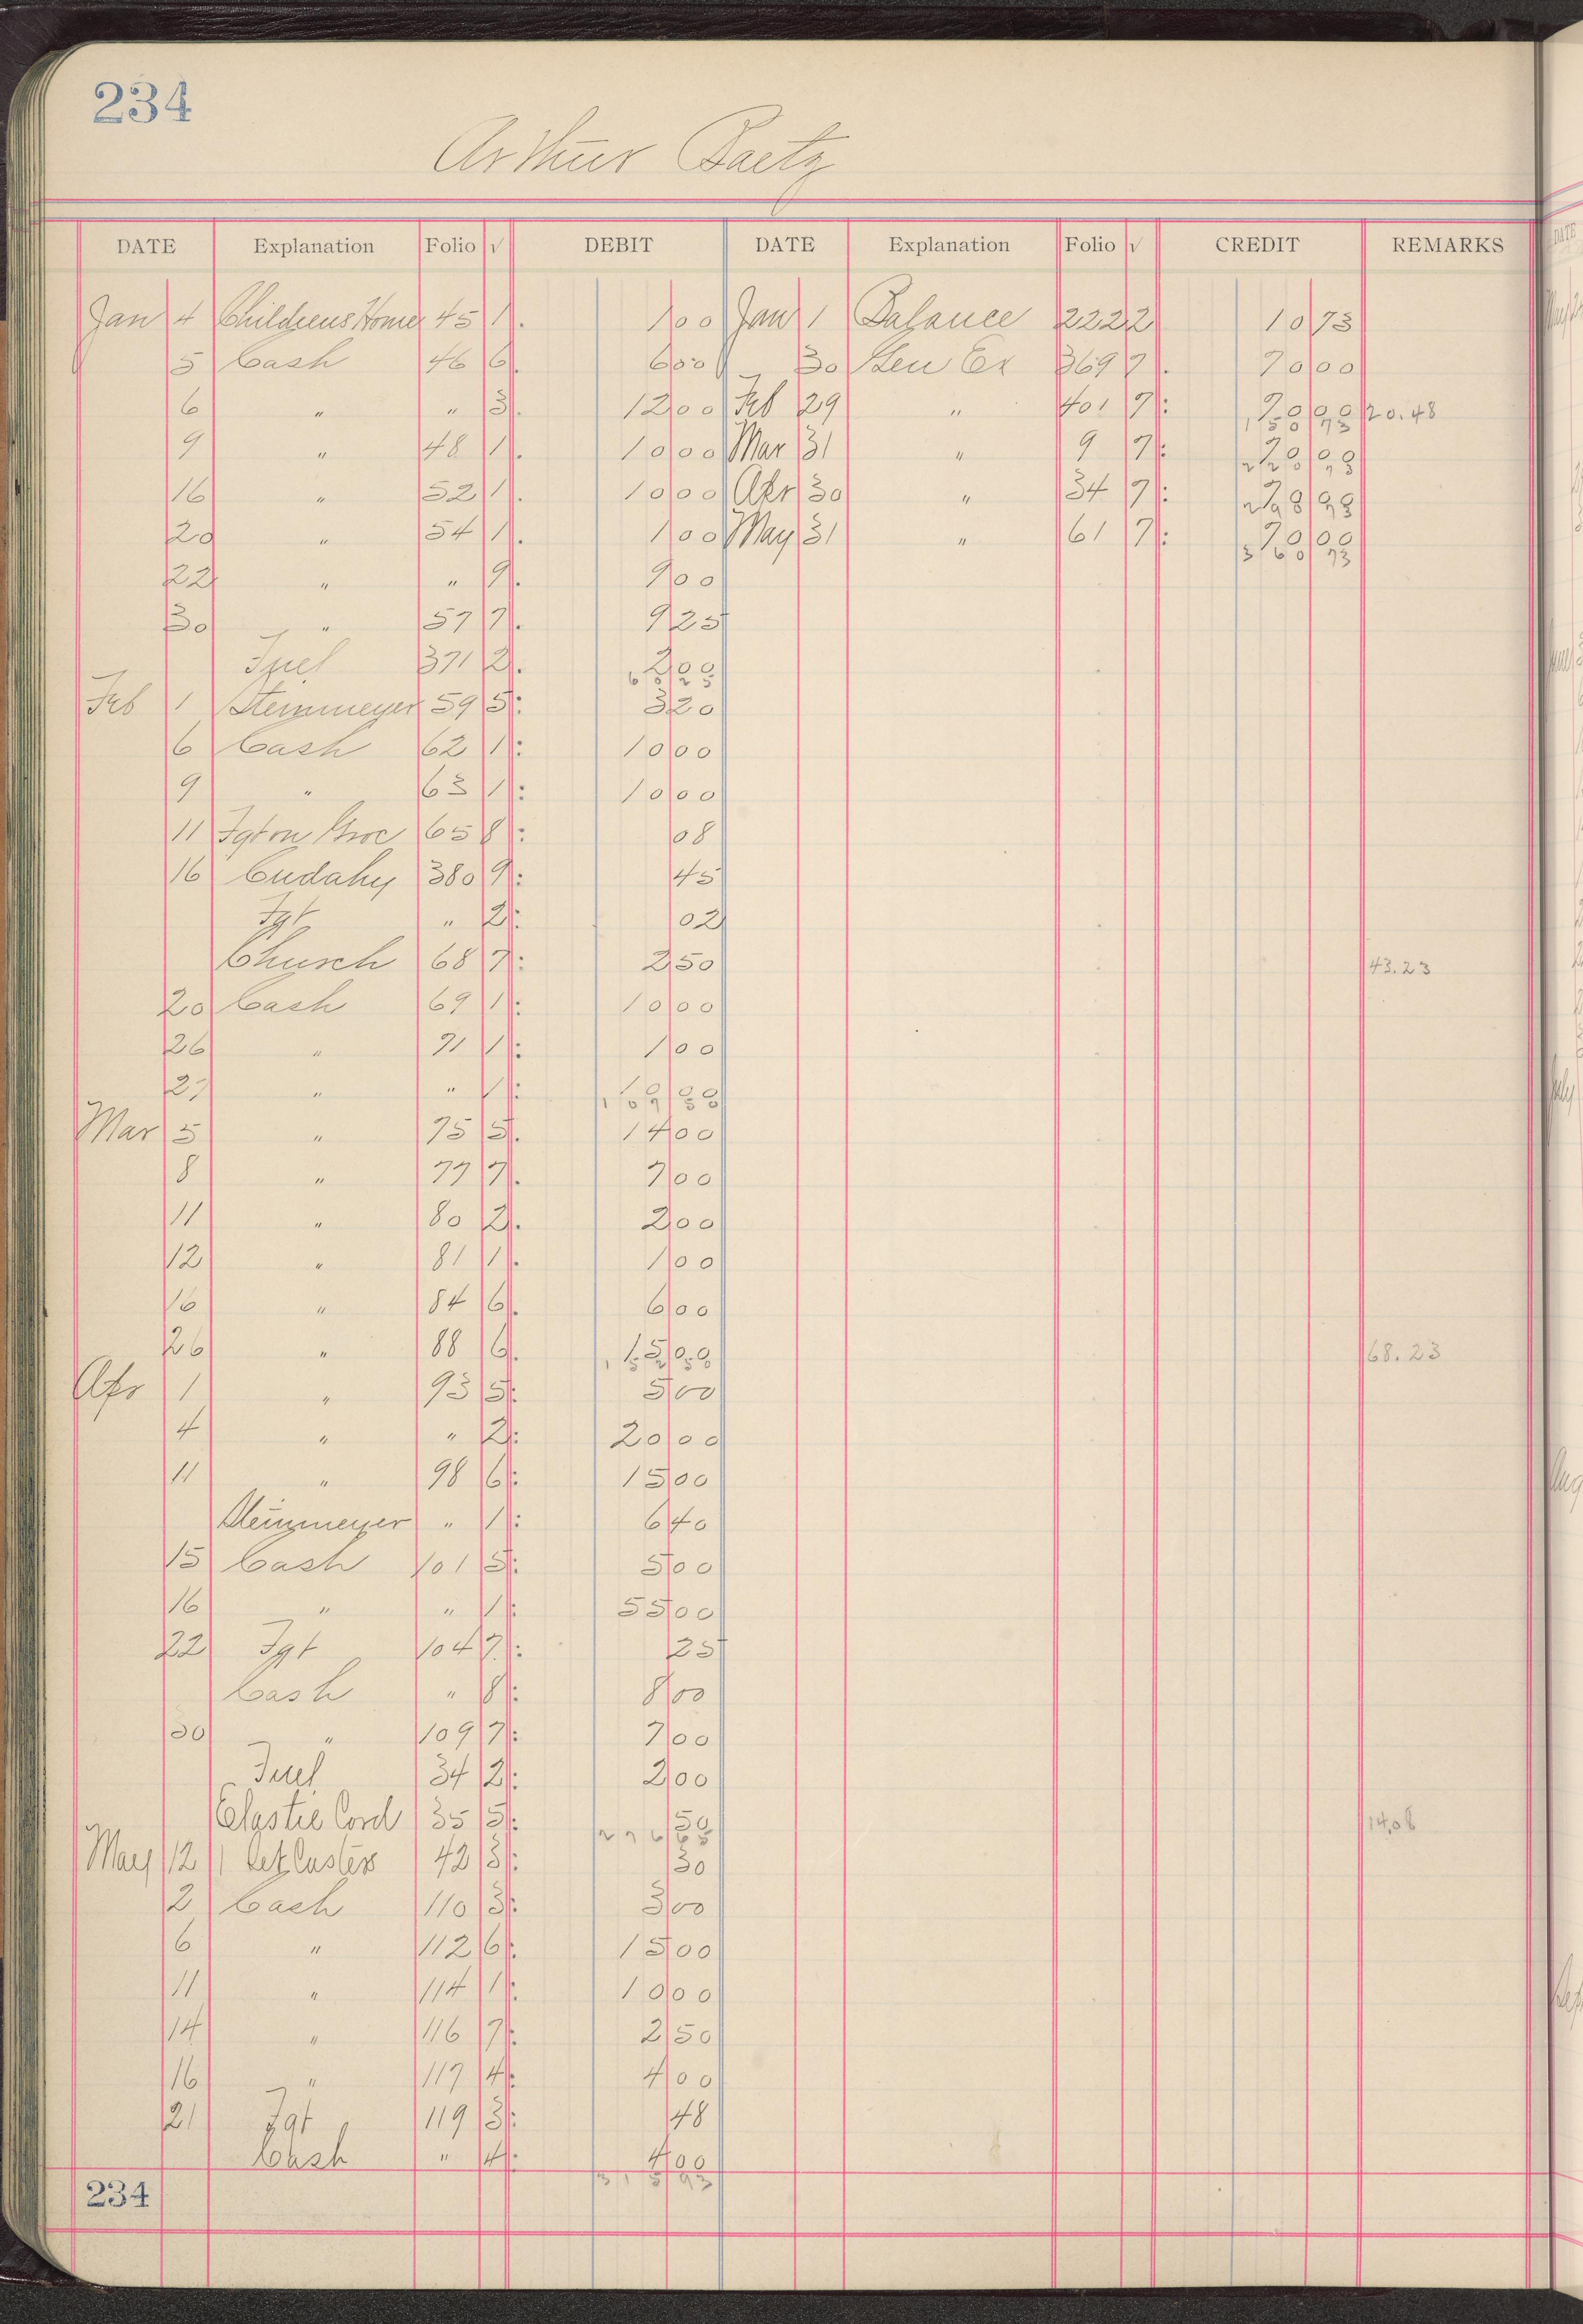 234
Arthur Baetz
DATE Explanation Folio √ DEBIT DATE Explanation Folio √ CREDIT REMARKS
Jan 4 Childrens Home 45 1. 1 00 Jan 1 Balance 222 2 10 73
5 Cash 46 6. 6 00 30 Gen Ex 369 7. 70 00
6 " " 3. 12 00 Feb 29 " 401 7: 70 00 20.48
150 73
9 " 48 1. 10 00 Mar 31 " 9 7: 70 00
220 73
16 " 52 1. 10 00 Apr 30 " 34 7: 70 00
290 73
20 " 54 1. 1 00 May 31 " 61 7: 70 00
360 73
22 " " 9. 9 00
30 " 57 7. 9 25
Fuel 371 2. 2 00
60 25
Feb 1 Steinmeyer 59 5: 3 20
6 Cash 62 1: 10 00
9 " 63 1: 10 00
11 Fgt on Groc 65 8: 08
16 Cudahy 380 9: 45
Fgt " 2: 02
Church 68 7: 2 50 43.23
20 Cash 69 1: 10 00
26 " 71 1: 1 00
27 " " 1: 10 00
107 50
Mar 5 " 75 5. 14 00
8 " 77 7. 7 00
11 " 80 2. 2 00
12 " 81 1. 1 00
16 " 84 6. 6 00
26 " 88 6. 15 00 68.23
152 50
Apr 1 " 93 5: 5 00
4 " " 2: 20 00
11 " 98 6: 15 00
Steinmeyer " 1: 6 40
15 Cash 101 5: 5 00
16 " " 1: 55 00
22 Fgt 104 7: 25
Cash " 8: 8 00
30 " 109 7: 7 00
Fuel 34 2: 2 00
Elastic Cord 35 5: 50 14.08
276 65
May 12 1 Set Casters 42 3: 30
2 Cash 110 3: 3 00
6 " 112 6: 15 00
11 " 114 1: 10 00
14 " 116 7: 2 50
16 " 117 4: 4 00
21 Fgt 119 3: 48
Cash " 4: 4 00
315 93
234